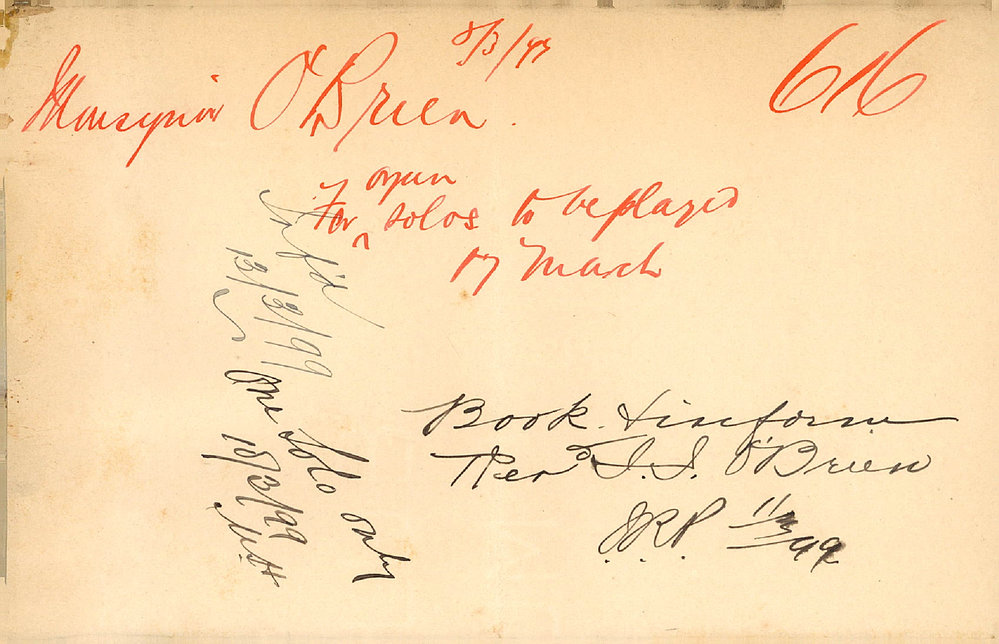 8/3/99
616
Monsignor O'Brien.
For organ solos to be played
17 March
Inf'd
13/3/99
One Solo only
10/3/99
Book & inform
Revd J. J. O'Brien
J.R.P. 11/3/99